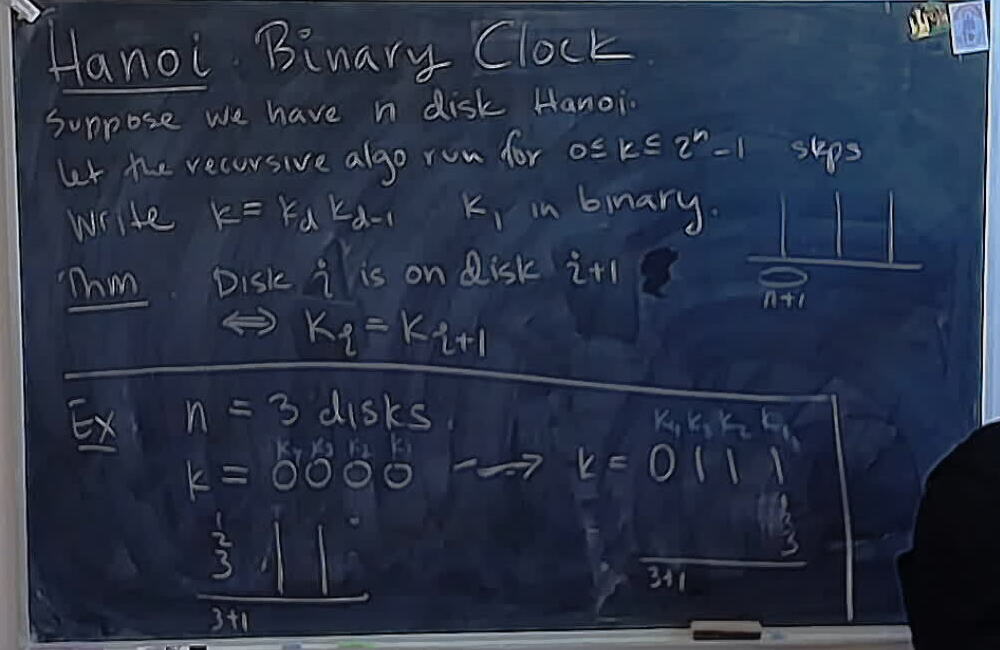 Hanoi Binary Clock
Suppose we have n disk Hanoi.
Let the recursive algo run for 0 ≤ k ≤ 2ⁿ-1 steps
Write k = k_d k_{d-1} k_1 in binary.
n+1
Thm Disk i is on disk i+1
⇔ k_i = k_{i+1}
Ex n = 3 disks.
k_4 k_3 k_2 k_1
k = 0000 → k = 0111
k_4 k_3 k_2 k_1
1
2
3
3+1
1
2
3
3+1